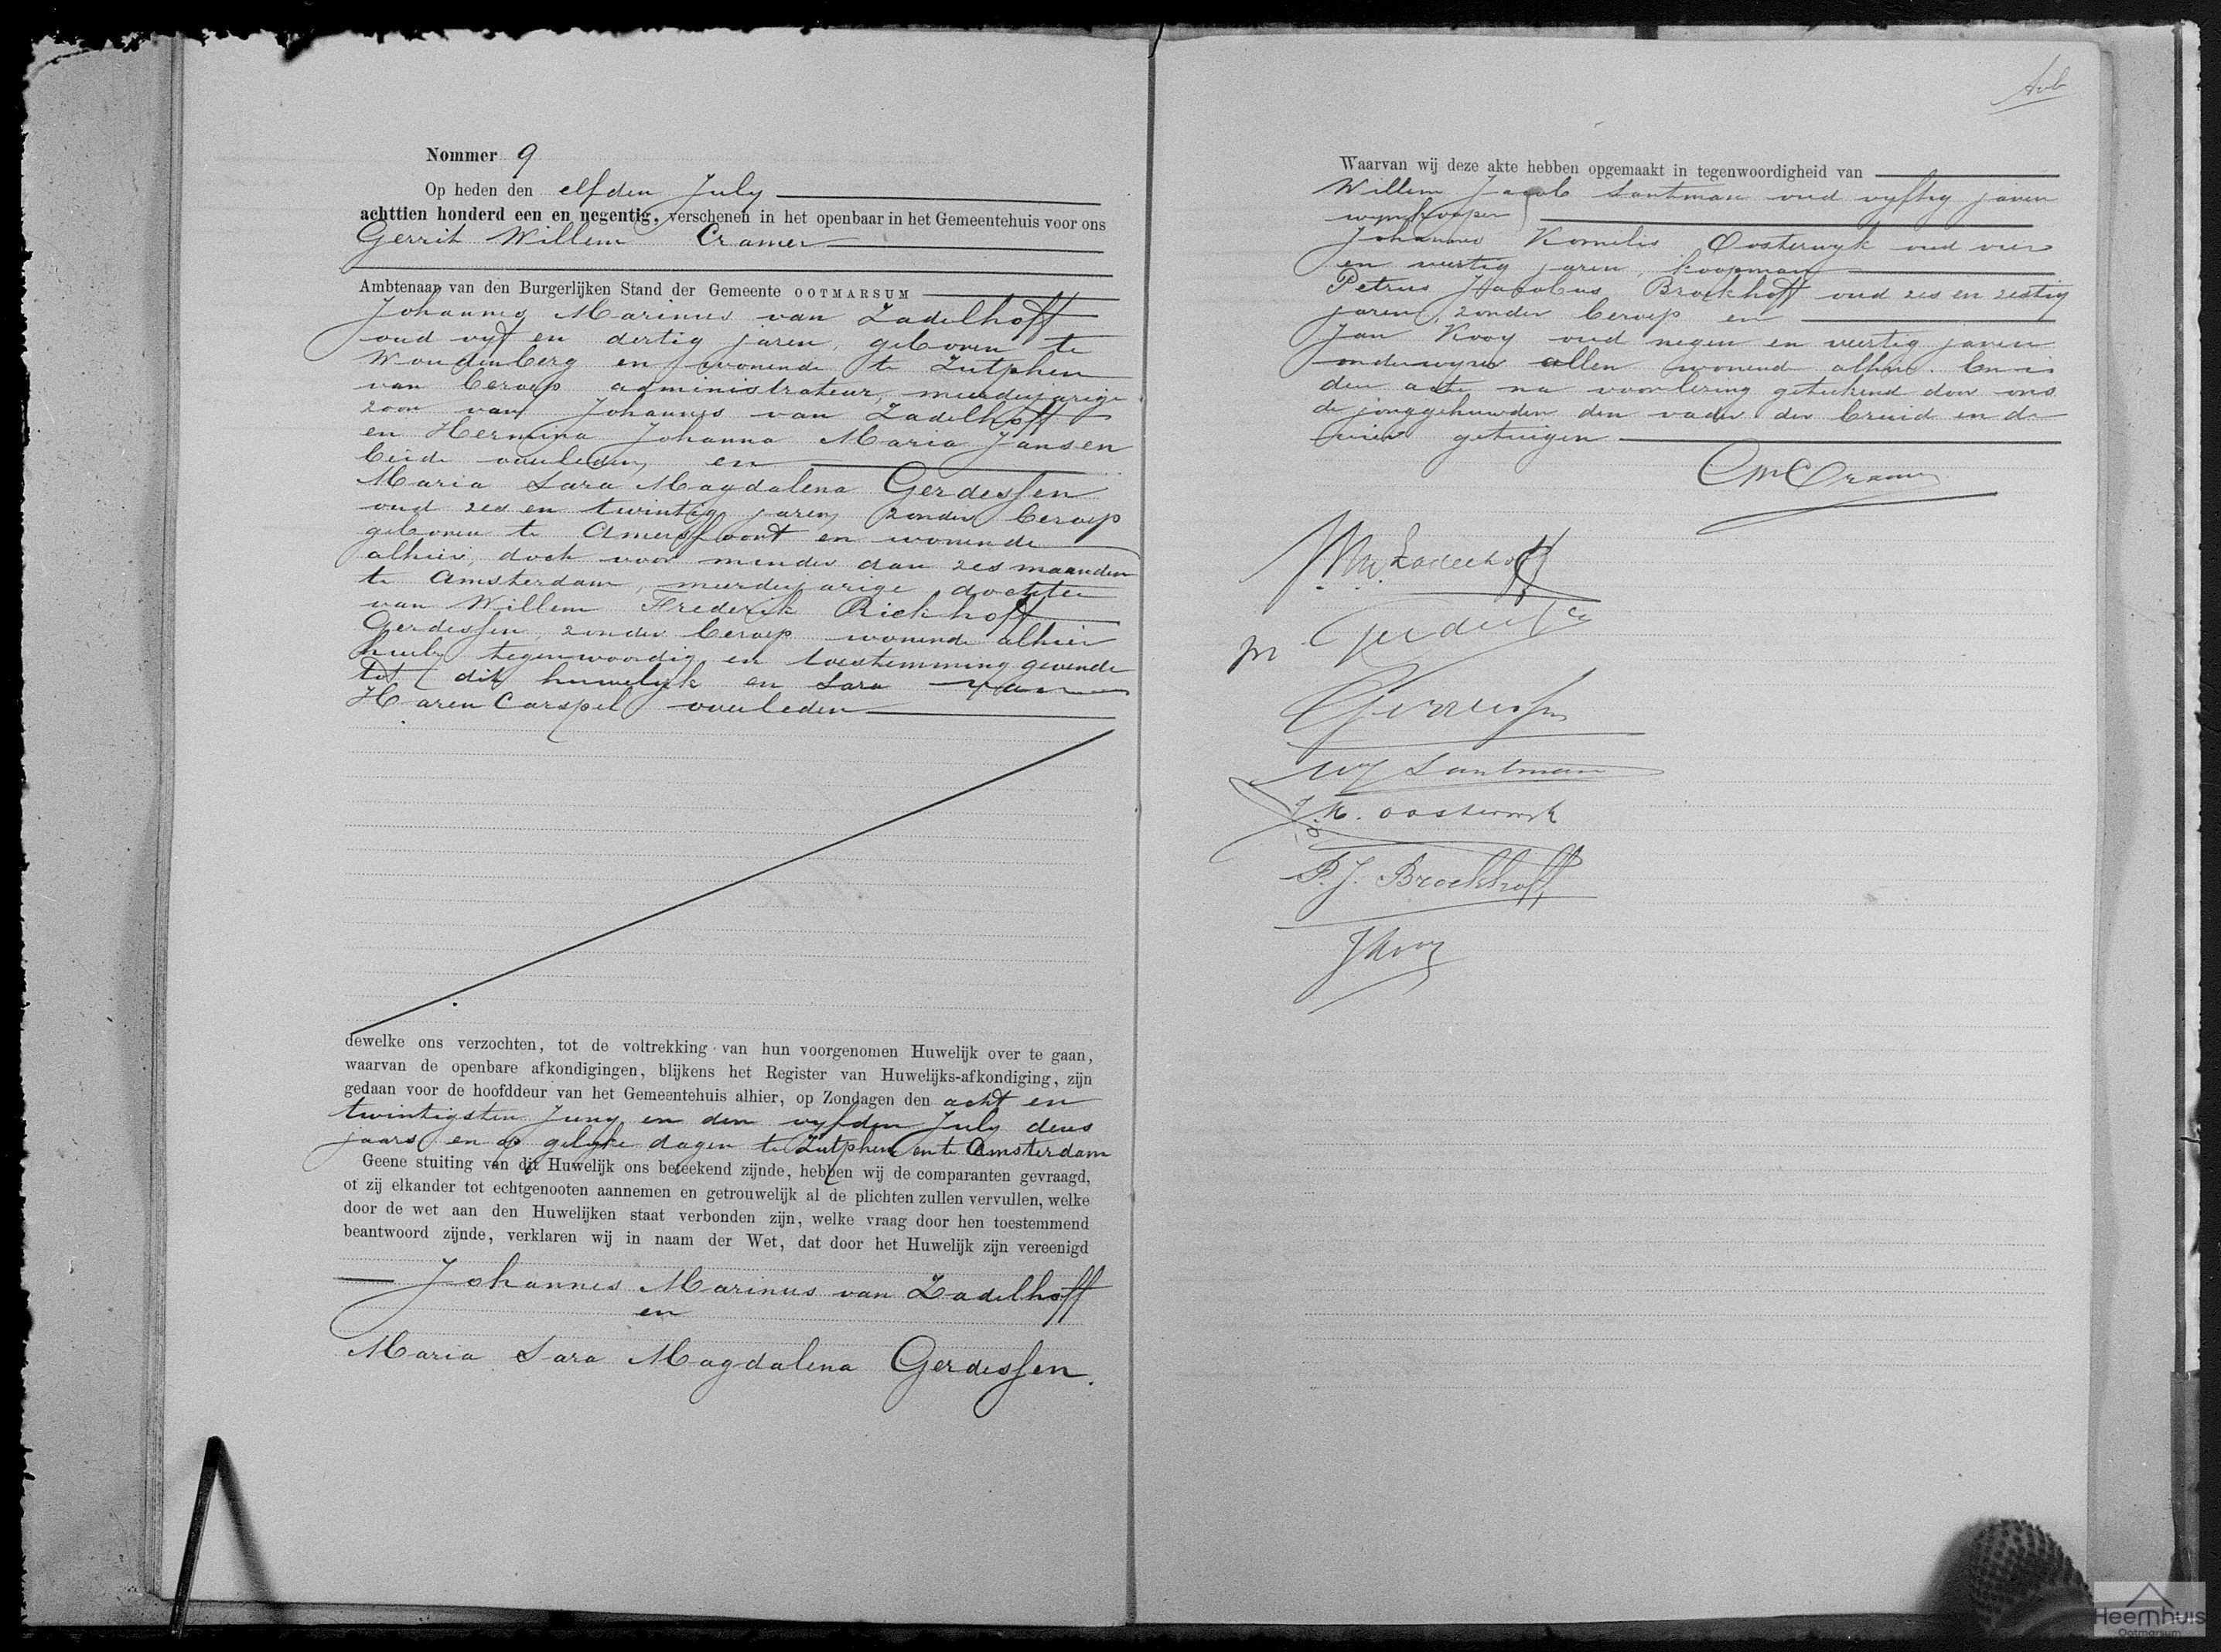 Nommer 9
Op heden den elfden July
achttien honderd een en negentig, verschenen in het openbaar in het Gemeentehuis voor ons
Gerrit Willem Cramer
Ambtenaar van den Burgerlijken Stand der Gemeente OOTMARSUM
Johannes Marinus van Zadelhoff
oud vijf en dertig jaren, geboren te
Woudenberg en wonende te Zutphen
van beroep administrateur, meerderjarige
zoon van Johannes van Zadelhoff
en Hermina Johanna Maria Jansen
beide overleden, en
Maria Sara Magdalena Gerdessen
oud zes en twintig jaren, zonder beroep
geboren te Amersfoort en wonende
alhier, doch voor minder dan zes maanden
te Amsterdam, meerderjarige dochter
van Willem Frederik Rickhoff
Gerdessen, zonder beroep wonende alhier
hierby tegenwoordig en toestemming gevende
tot dit huwelyk en Sara van
Haren Carspel overleden
dewelke ons verzochten, tot de voltrekking van hun voorgenomen Huwelijk over te gaan,
waarvan de openbare afkondigingen, blijkens het Register van Huwelijks-afkondiging, zijn
gedaan voor de hoofddeur van het Gemeentehuis alhier, op Zondagen den acht en
twintigsten Juny en den vyfden July dezes
jaars en op gelyke dagen te Zutphen en te Amsterdam
Geene stuiting van dit Huwelijk ons beteekend zijnde, hebben wij de comparanten gevraagd,
of zij elkander tot echtgenooten aannemen en getrouwelijk al de plichten zullen vervullen, welke
door de wet aan den Huwelijken staat verbonden zijn, welke vraag door hen toestemmend
beantwoord zijnde, verklaren wij in naam der Wet, dat door het Huwelijk zijn vereenigd
Johannes Marinus van Zadelhoff
en
Maria Sara Magdalena Gerdessen.
Waarvan wij deze akte hebben opgemaakt in tegenwoordigheid van
Willem Jacob Santman oud vyftig jaren
wynkooper
Johannes Kornelis Oosterwyk oud vier
en veertig jaren, koopman
Petrus Jacobus Broekhoff oud zes en zestig
jaren, zonder beroep en
Jan Kooy oud negen en veertig jaren
onderwyzer allen wonend alhier. En is
deze acte na voorlezing geteekend door ons
de jonggehuwden den vader der bruid en de
vier getuigen
GW Cramer
JM v. Zadelhoff
M Gerdessen
Gerdessen
WJ Santman
J.K. Oosterwyk
P.J. Broekhoff
J Kooy
Heernhuis
Ootmarsum